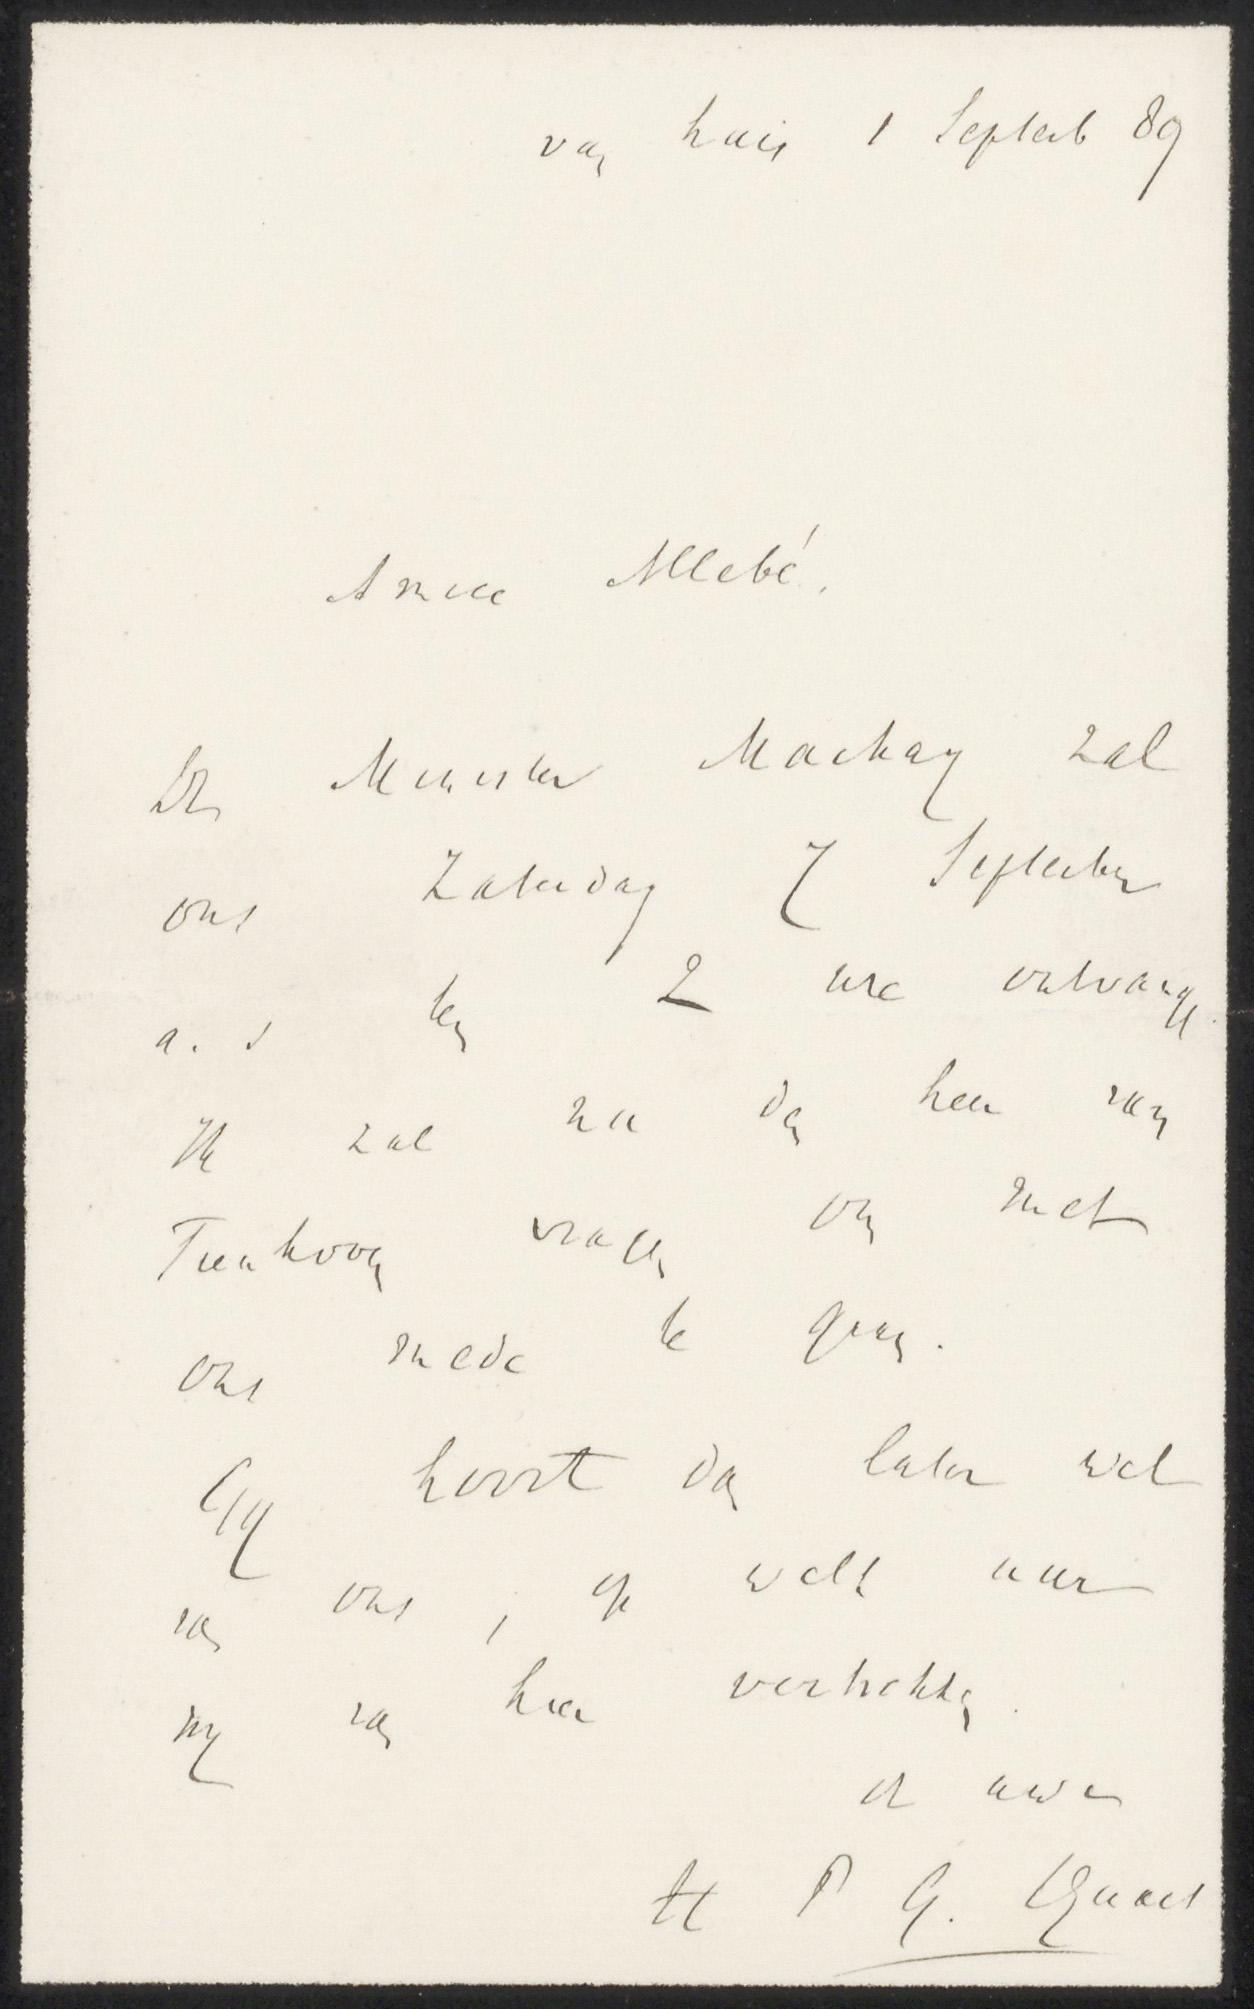 van huis 1 Septemb 89
Amice Allebé,
De Minister Mackay zal
ons Zaterdag 7 September
a. s ten 2 ure ontvangen.
Ik zal nu den heer van
Tienhoven vragen om met
ons mede te gaan.
Gij hoort dan later wel
van ons, op welk uur
wij van hier vertrekken.
de uwe
H P G. Quack